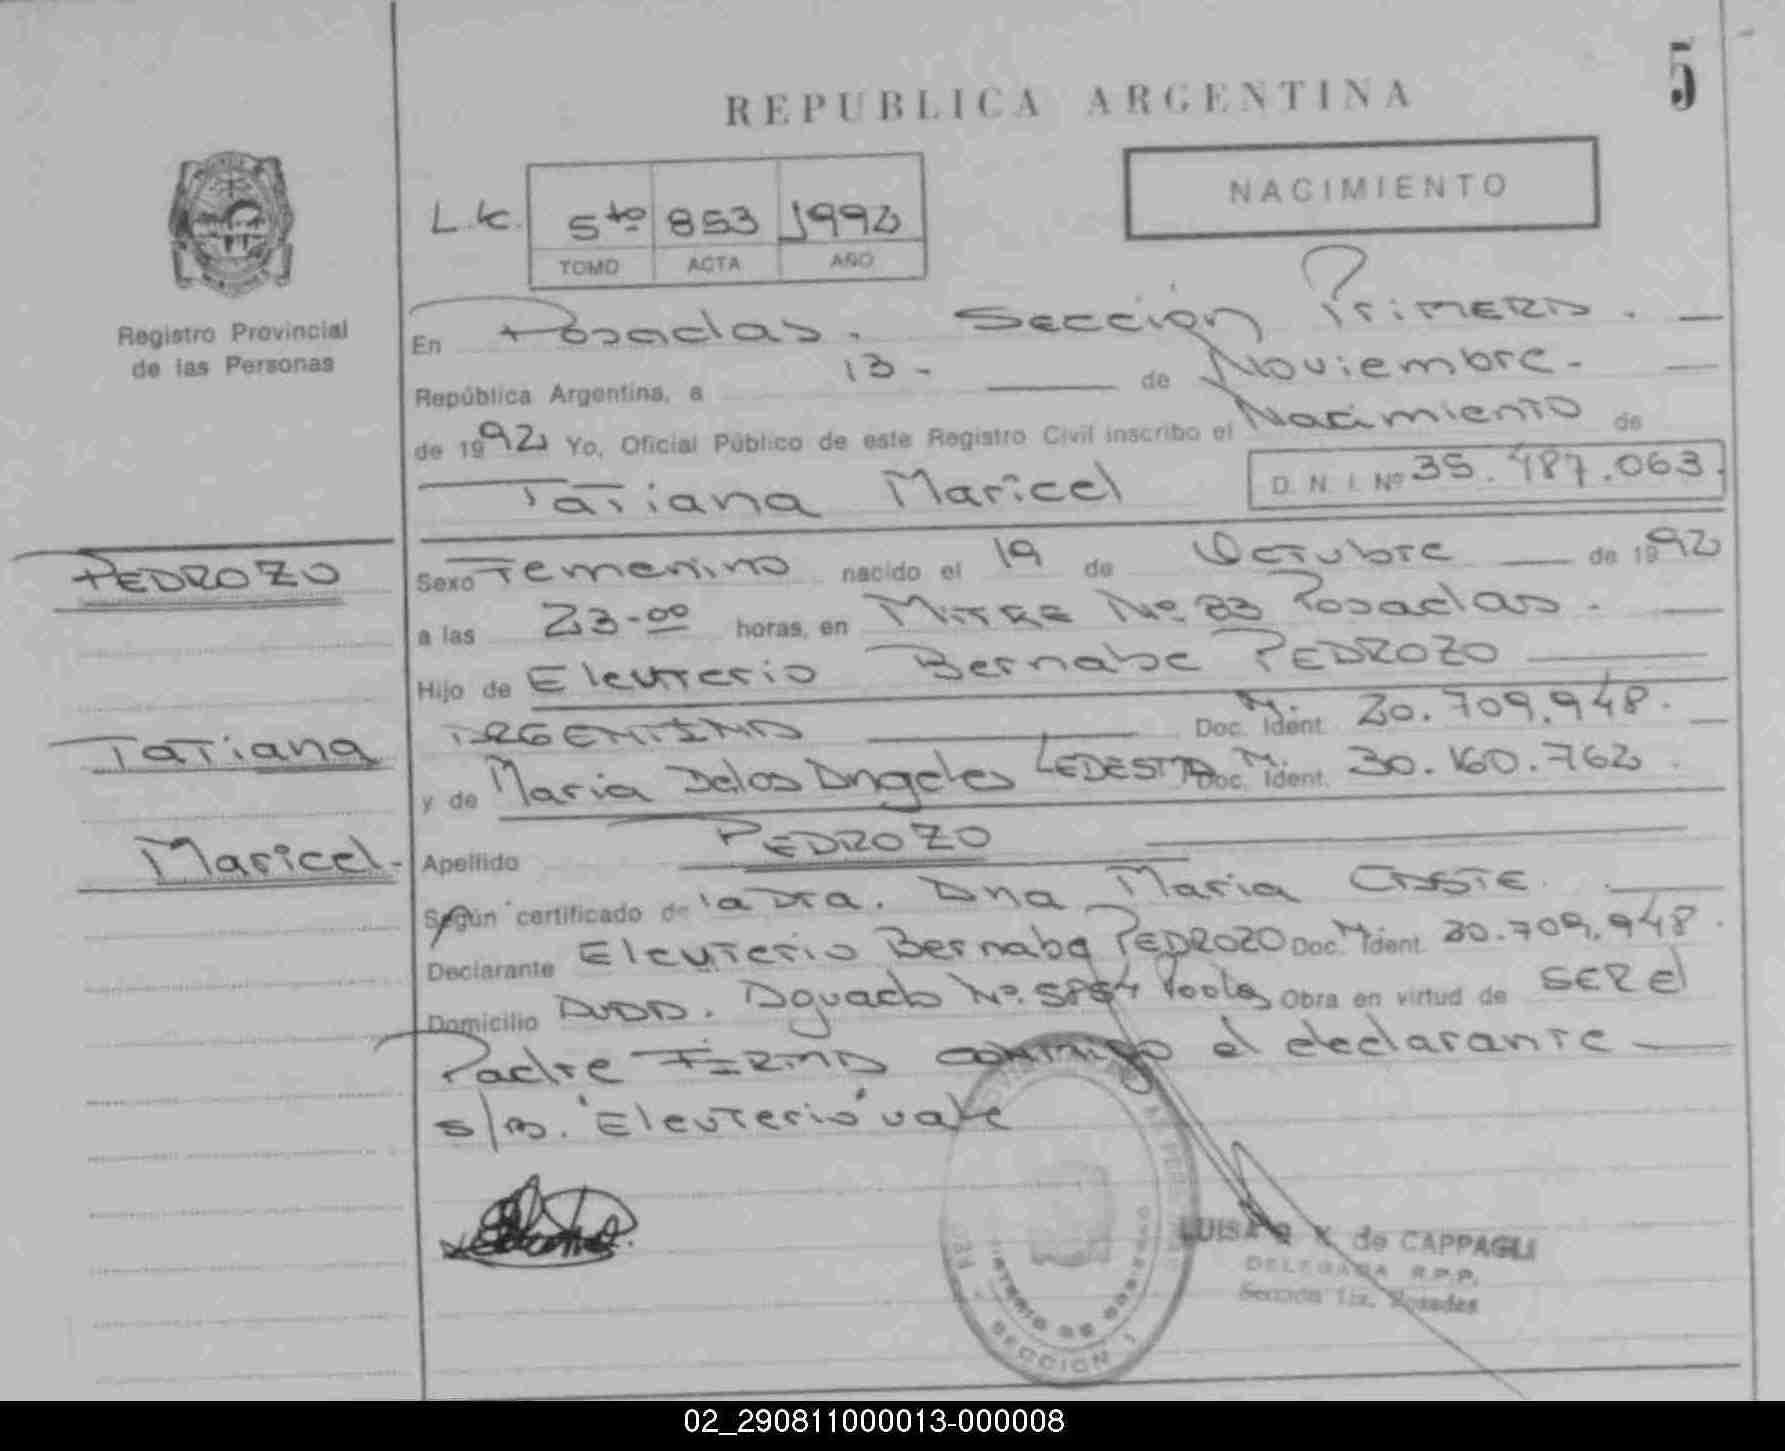 5
REPUBLICA ARGENTINA
NACIMIENTO
5to 853 1992
TOMO ACTA AÑO
Registro Provincial
de las Personas
En Posadas. Sección Primera.
República Argentina, a 13 - de Noviembre.
de 1992 Yo, Oficial Público de este Registro Civil inscribo el Nacimiento de
Tatiana Maricel D. N. I. Nº 35.487.063.
PEDROZO
Sexo Femenino nacido el 19 de Octubre de 1992
a las 23-00 horas, en Mitre Nº. 83 Posadas.
Hijo de Eleuterio Bernabe PEDROZO
ARGENTINA Doc. M. Ident. 20.709.948.
Tatiana
y de Maria Delos Angeles LEDESMA Doc. M. Ident. 30.160.762.
Maricel.-
Apellido PEDROZO
Según certificado de la Dra. Ana Maria
Declarante Eleuterio Bernabe PEDROZO Doc. M. Ident. 20.709.948.
Domicilio Aguado Nº. Obra en virtud de SER El
Padre FIRMA conmigo el declarante
s/B. "Eleuterio" vale
LUISA de CAPPAGLI
DELEGADA R.P.P.
Sección 1ra. Posadas
MINISTERIO DE GOBIERNO
SECCION 1
02_290811000013-000008